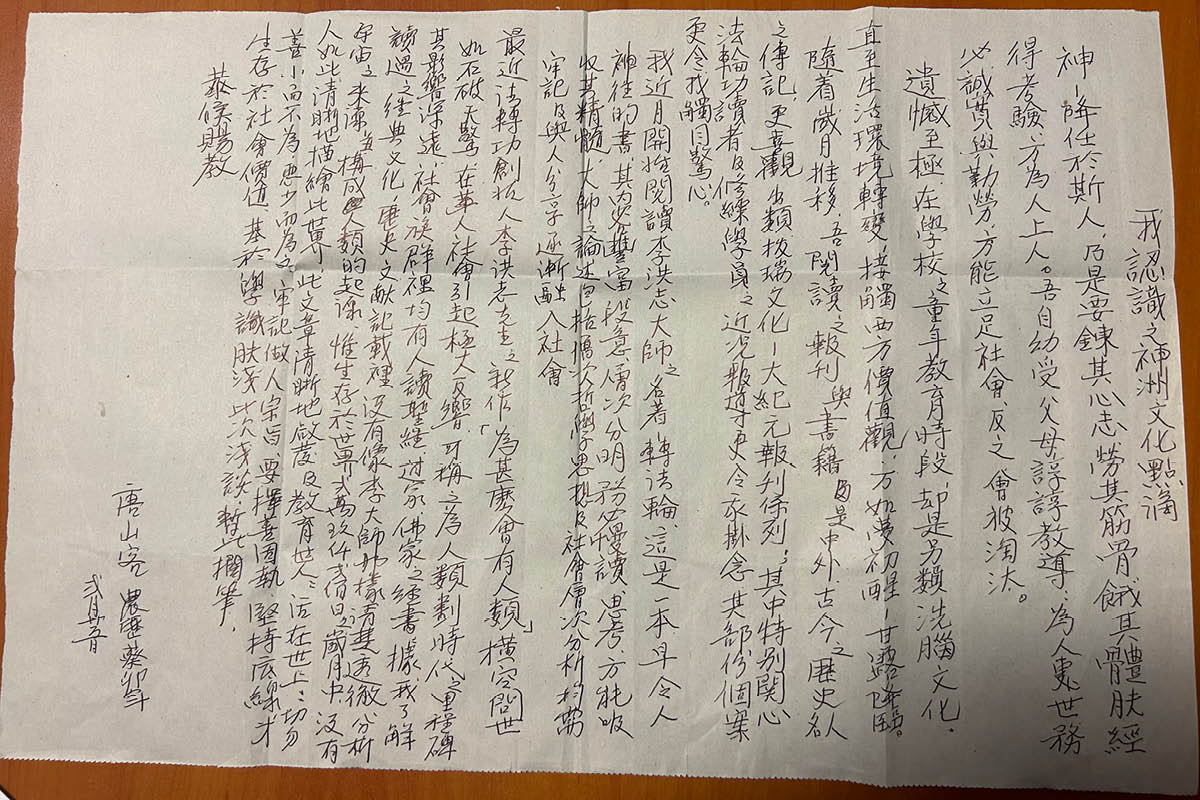 我認識之神洲文化點滴
神-降任於斯人,乃是要鍊其心志勞其筋骨餓其體肤經
得考驗、方為人上人。吾自幼受父母諄諄教導:為人處世務
必誠實與勤勞,方能立足社會、反之會被淘汰。
遺憾至極,在學校之童年教育時段,却是另類洗腦文化.
直至生活環境轉變,接觸西方價值觀,方如夢初醒-甘露降臨。
隨着歲月推移,吾閱讀之報刊與書籍 是中外、古今之歷史名人
之傳記,更喜觀出類拔瑞文化-大紀元報刊系列,其中特別関心
法輪功讀者及修練學員之近況報導更令我掛念,其部份個案
更令我觸目驚心。
我近月開始閱讀李洪志大師之名著轉法輪,這是一本早令人
神往的書,其内容豐富段意層次分明,務必慢讀、思考、方能吸
收其精髓,大師之論述包括傷次哲學思想及社會層次分析均需
牢記及與人分享逐漸融入社會
最近法轉功創办人李洪志先生之新作「為甚麽會有人類」橫空閱世
如石破天驚,在華人社會引起極大反響,可稱之為人類劃時代之里程碑
其影響深遠,社會族群裡均有人讀聖經、道家、佛家之經書,據我了解
讀過之經典文化,歷史文献記載裡,沒有像李大師那樣清楚透徹分析
宇宙之來源,與構成人類的起源,惟生存於世界弍萬玖仟
人如此清晰地描繪此世界,此文章清晰地啟發及教育世人:活在世上,切勿
善小而不為,惡少而為之,牢記做人宗旨,要擇善固執,堅持底線才
生存於社會價值,基於學識肤淺,此次淺談,暫此擱筆,
恭候賜教
唐山客 農曆葵卯年
弍月